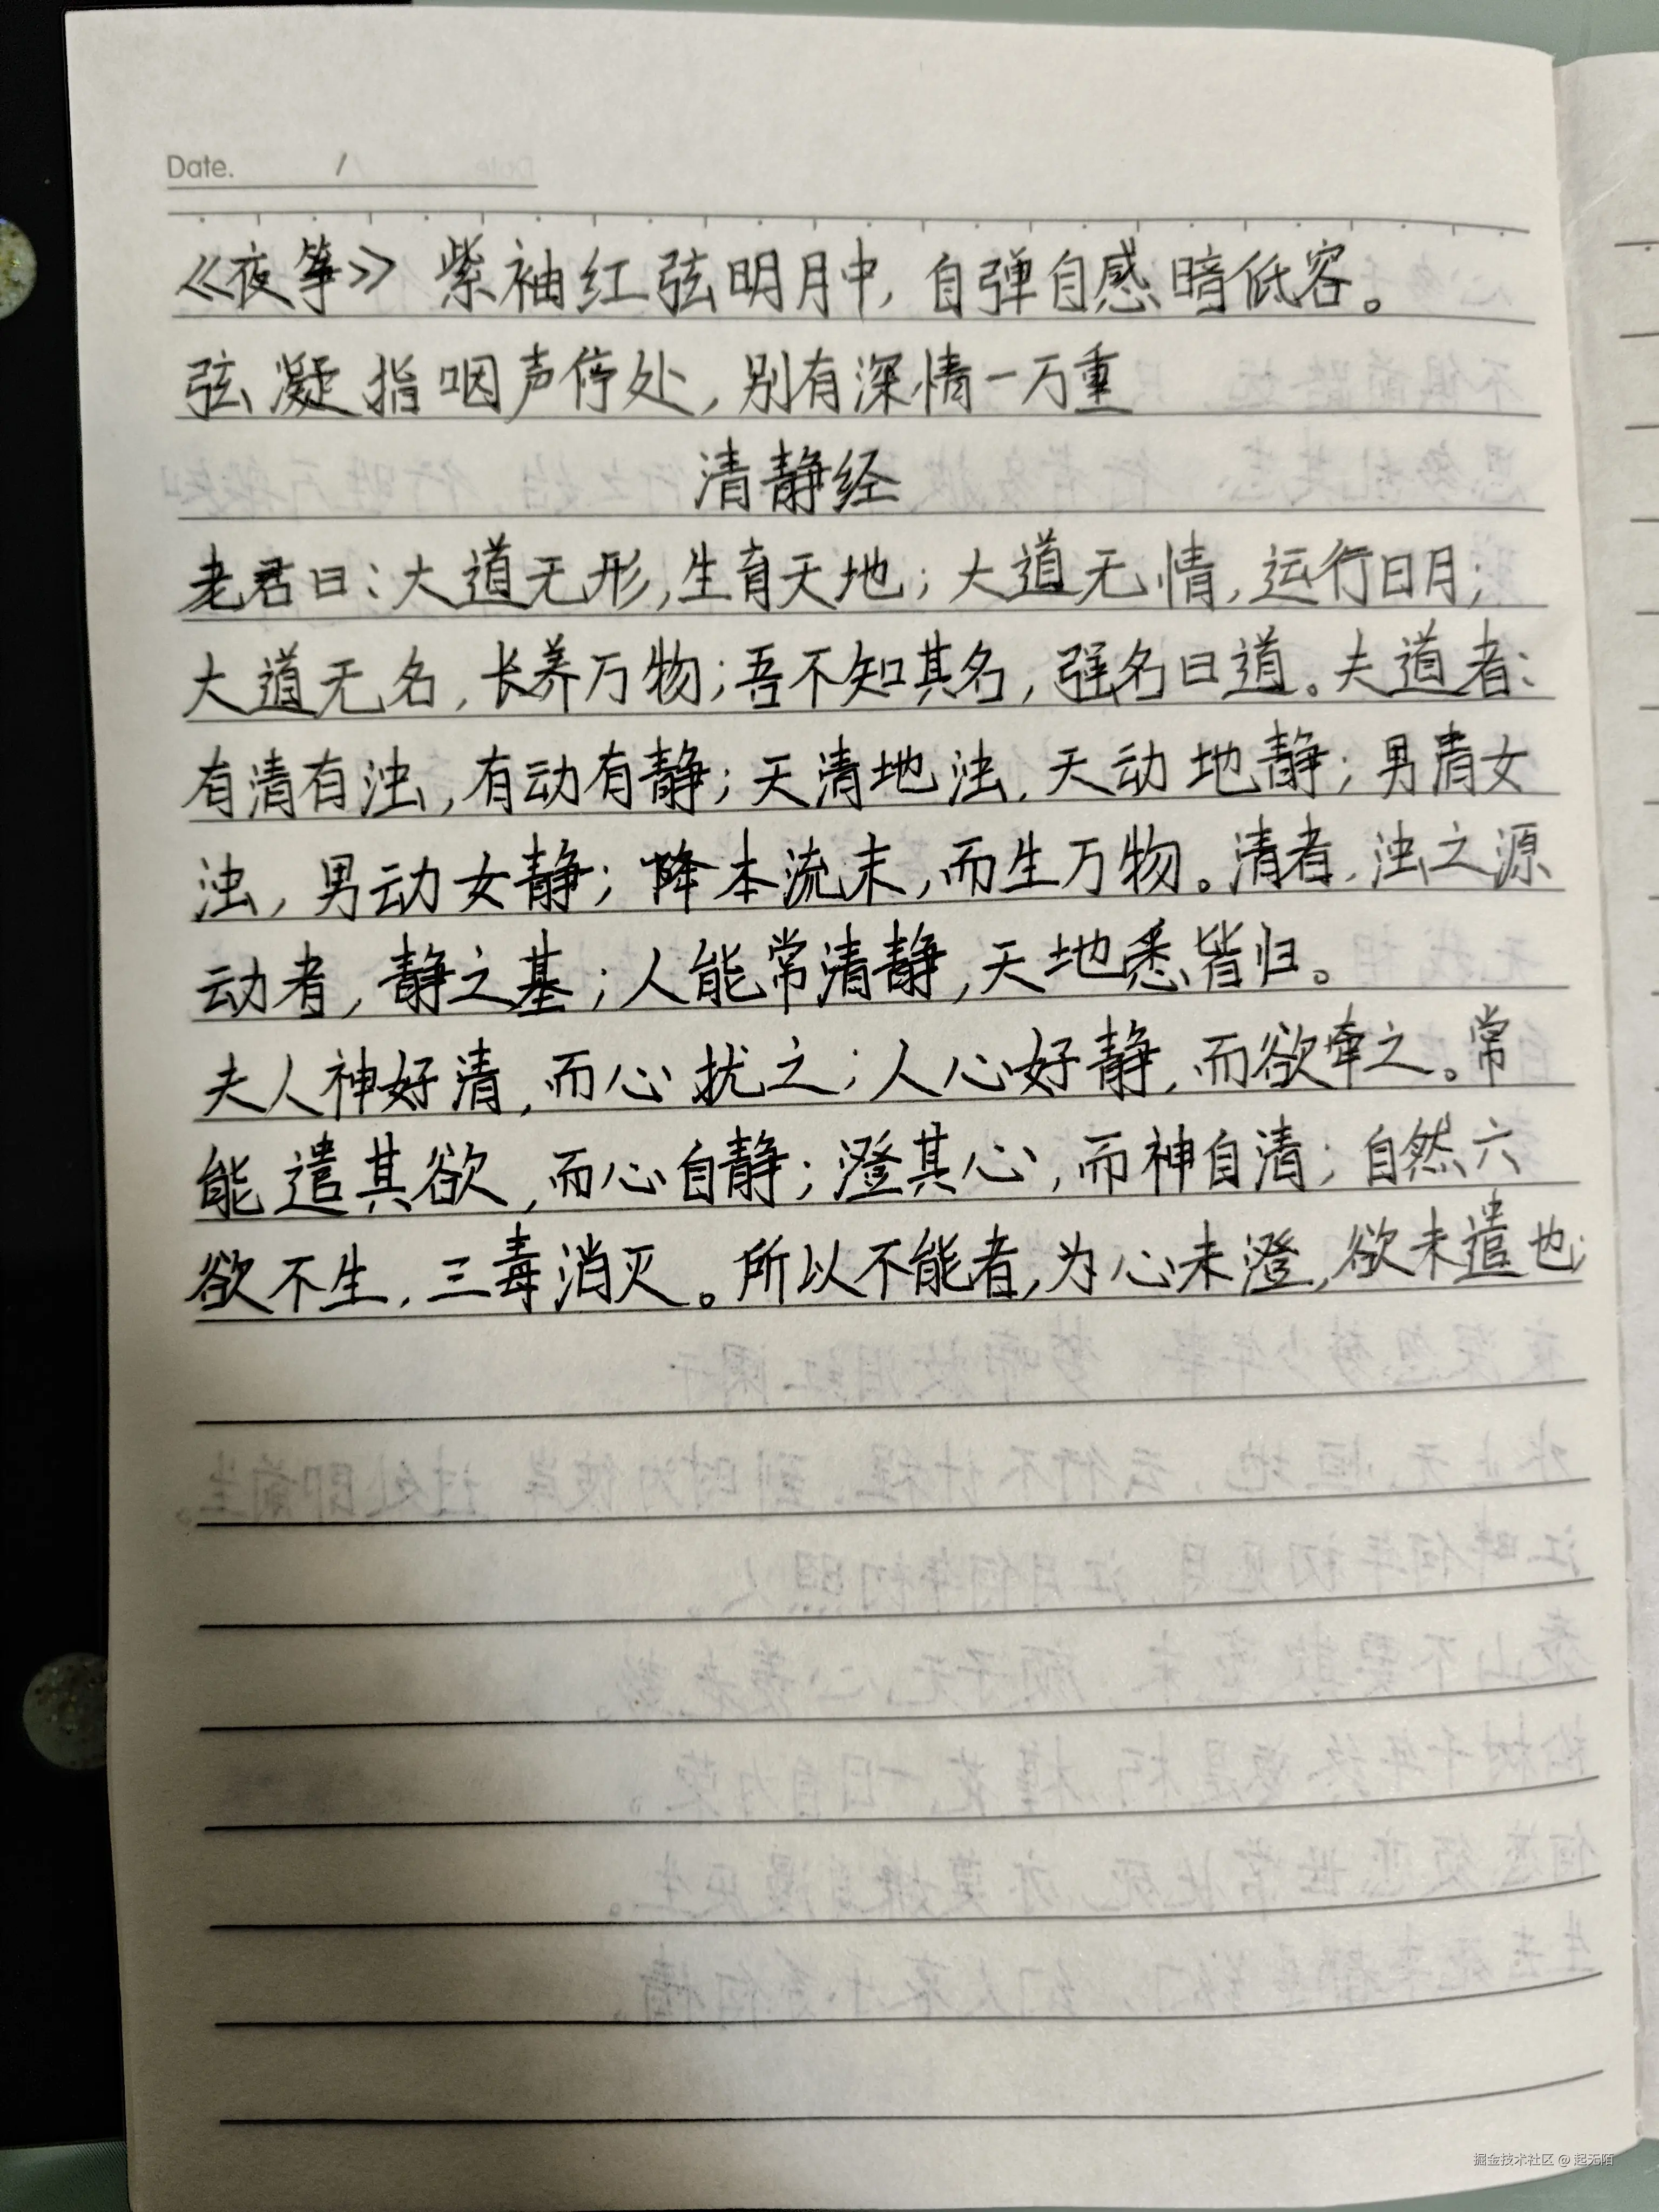 Date. /
《夜筝》 紫袖红弦明月中,自弹自感暗低容。
弦凝指咽声停处,别有深情一万重
清静经
老君曰:大道无形,生育天地;大道无情,运行日月;
大道无名,长养万物;吾不知其名,强名曰道。夫道者:
有清有浊,有动有静;天清地浊,天动地静;男清女
浊,男动女静;降本流末,而生万物。清者,浊之源
动者,静之基;人能常清静,天地悉皆归。
夫人神好清,而心扰之;人心好静,而欲牵之。常
能遣其欲,而心自静;澄其心,而神自清;自然六
欲不生,三毒消灭。所以不能者,为心未澄,欲未遣也;
掘金技术社区 @ 起无陌